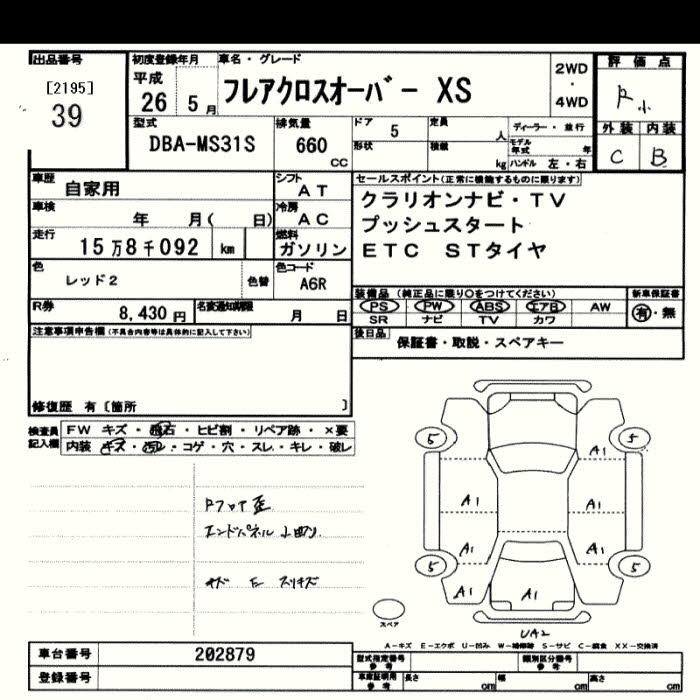 出品番号
[2195]
39
初度登録年月
平成
26 5 月
車名・グレード
フレアクロスオーバー XS
2WD
・
4WD
評価点
R 小
外装 内装
C B
型式
DBA-MS31S
排気量
660
CC
ドア
5
定員
人
形状
積載
kg
ディーラー・並行
モデル年式 年
ハンドル 左・右
車歴
自家用
シフト
AT
車検
年 月( 日)
冷房
AC
走行
15万8千092 km
燃料
ガソリン
色
レッド2
色替
色コード
A6R
R券
8,430 円
名変通知期限
月 日
セールスポイント(正常に機能するものに限ります)
クラリオンナビ・TV
プッシュスタート
ETC STタイヤ
装備品 (純正品に限り○をつけてください)
PS PW ABS エアB AW
SR ナビ TV カワ
新車保証書
有・無
後日品
保証書・取説・スペアキー
注意事項申告欄(不具合内容等は具体的に記入して下さい)
修復歴 有〔箇所 〕
検査員記入欄
FW キズ・飛石・ヒビ割・リペア跡・×要
内装 キズ・汚レ・コゲ・穴・スレ・キレ・破レ
Rフロア歪
エンドパネル
キズ E スリキズ
5 5
A1
A1 A1
A1 A1
5 5
A1 A1
UA2
スペア
A－キズ E－エクボ U－凹み W－補修跡 S－サビ C－腐食 XX－交換済
車台番号
202879
登録番号
型式指定番号
参考
類別区分番号
参考
車庫証明用
参考
長さ cm 幅 cm 高さ cm